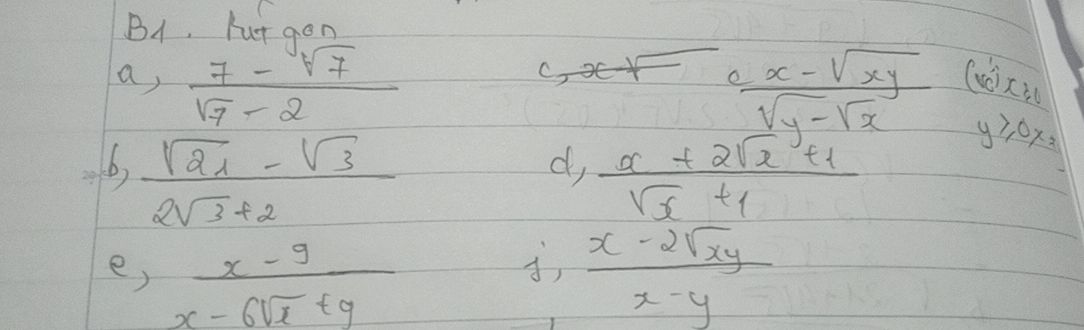 B1. Rút gọn
a, (7 - √7)/(√7 - 2)
c (x - √xy)/(√y - √x) (với x≥0 y≥0
b, (√21 - √3)/(2√3 + 2)
d, (x + 2√x + 1)/(√x + 1)
e, (x - 9)/(x - 6√x + 9)
f, (x - 2√xy)/(x - y)